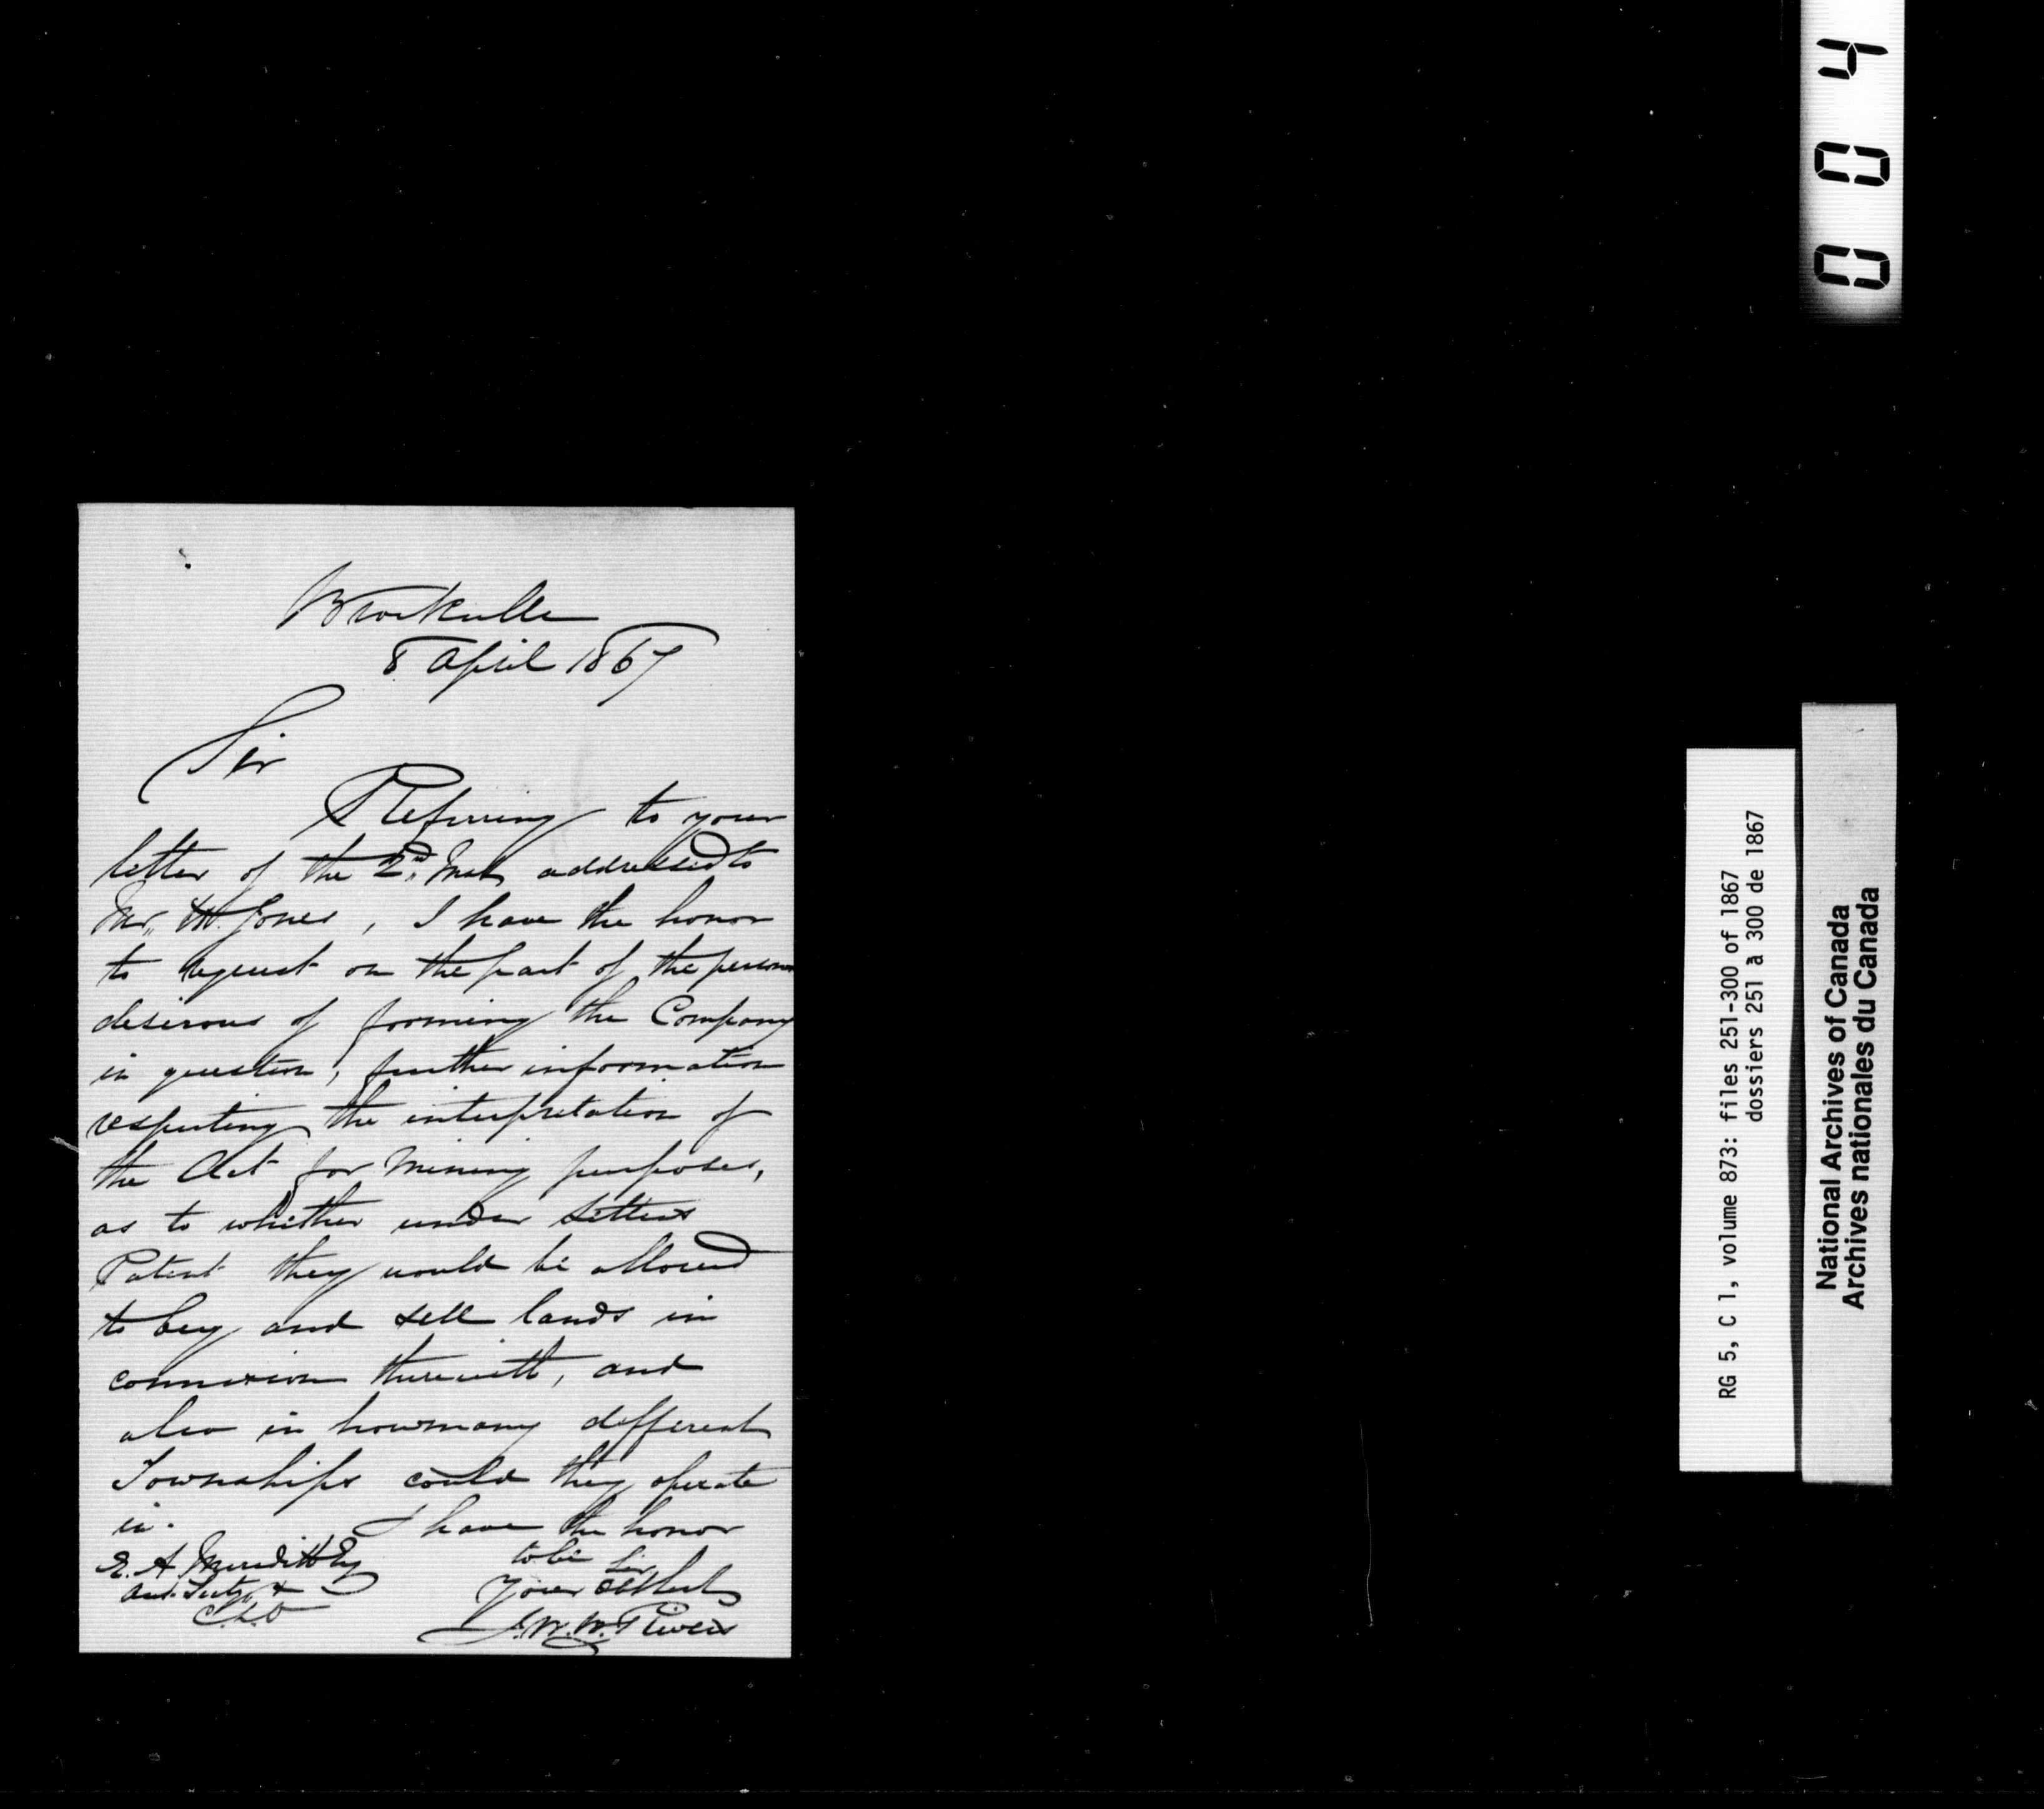 Brockville
8 April 1867
Sir
Referring to your
letter of the 2nd Inst addressed to
Mr. W. Jones, I have the honor
to request on the part of the persons
desirous of forming the Company
in question, further information
respecting the interpretation of
the Act for Mining purposes,
as to whether under Letters
Patent they would be allowed
to buy and sell lands in
connexion therewith, and
also in how many different
Townships could they operate
in. I have the honor
to be Sir
Your Obt
E. A. Meredith Esq
W. Rivers
004
RG 5, C 1, volume 873: files 251-300 of 1867
dossiers 251 à 300 de 1867
National Archives of Canada
Archives nationales du Canada